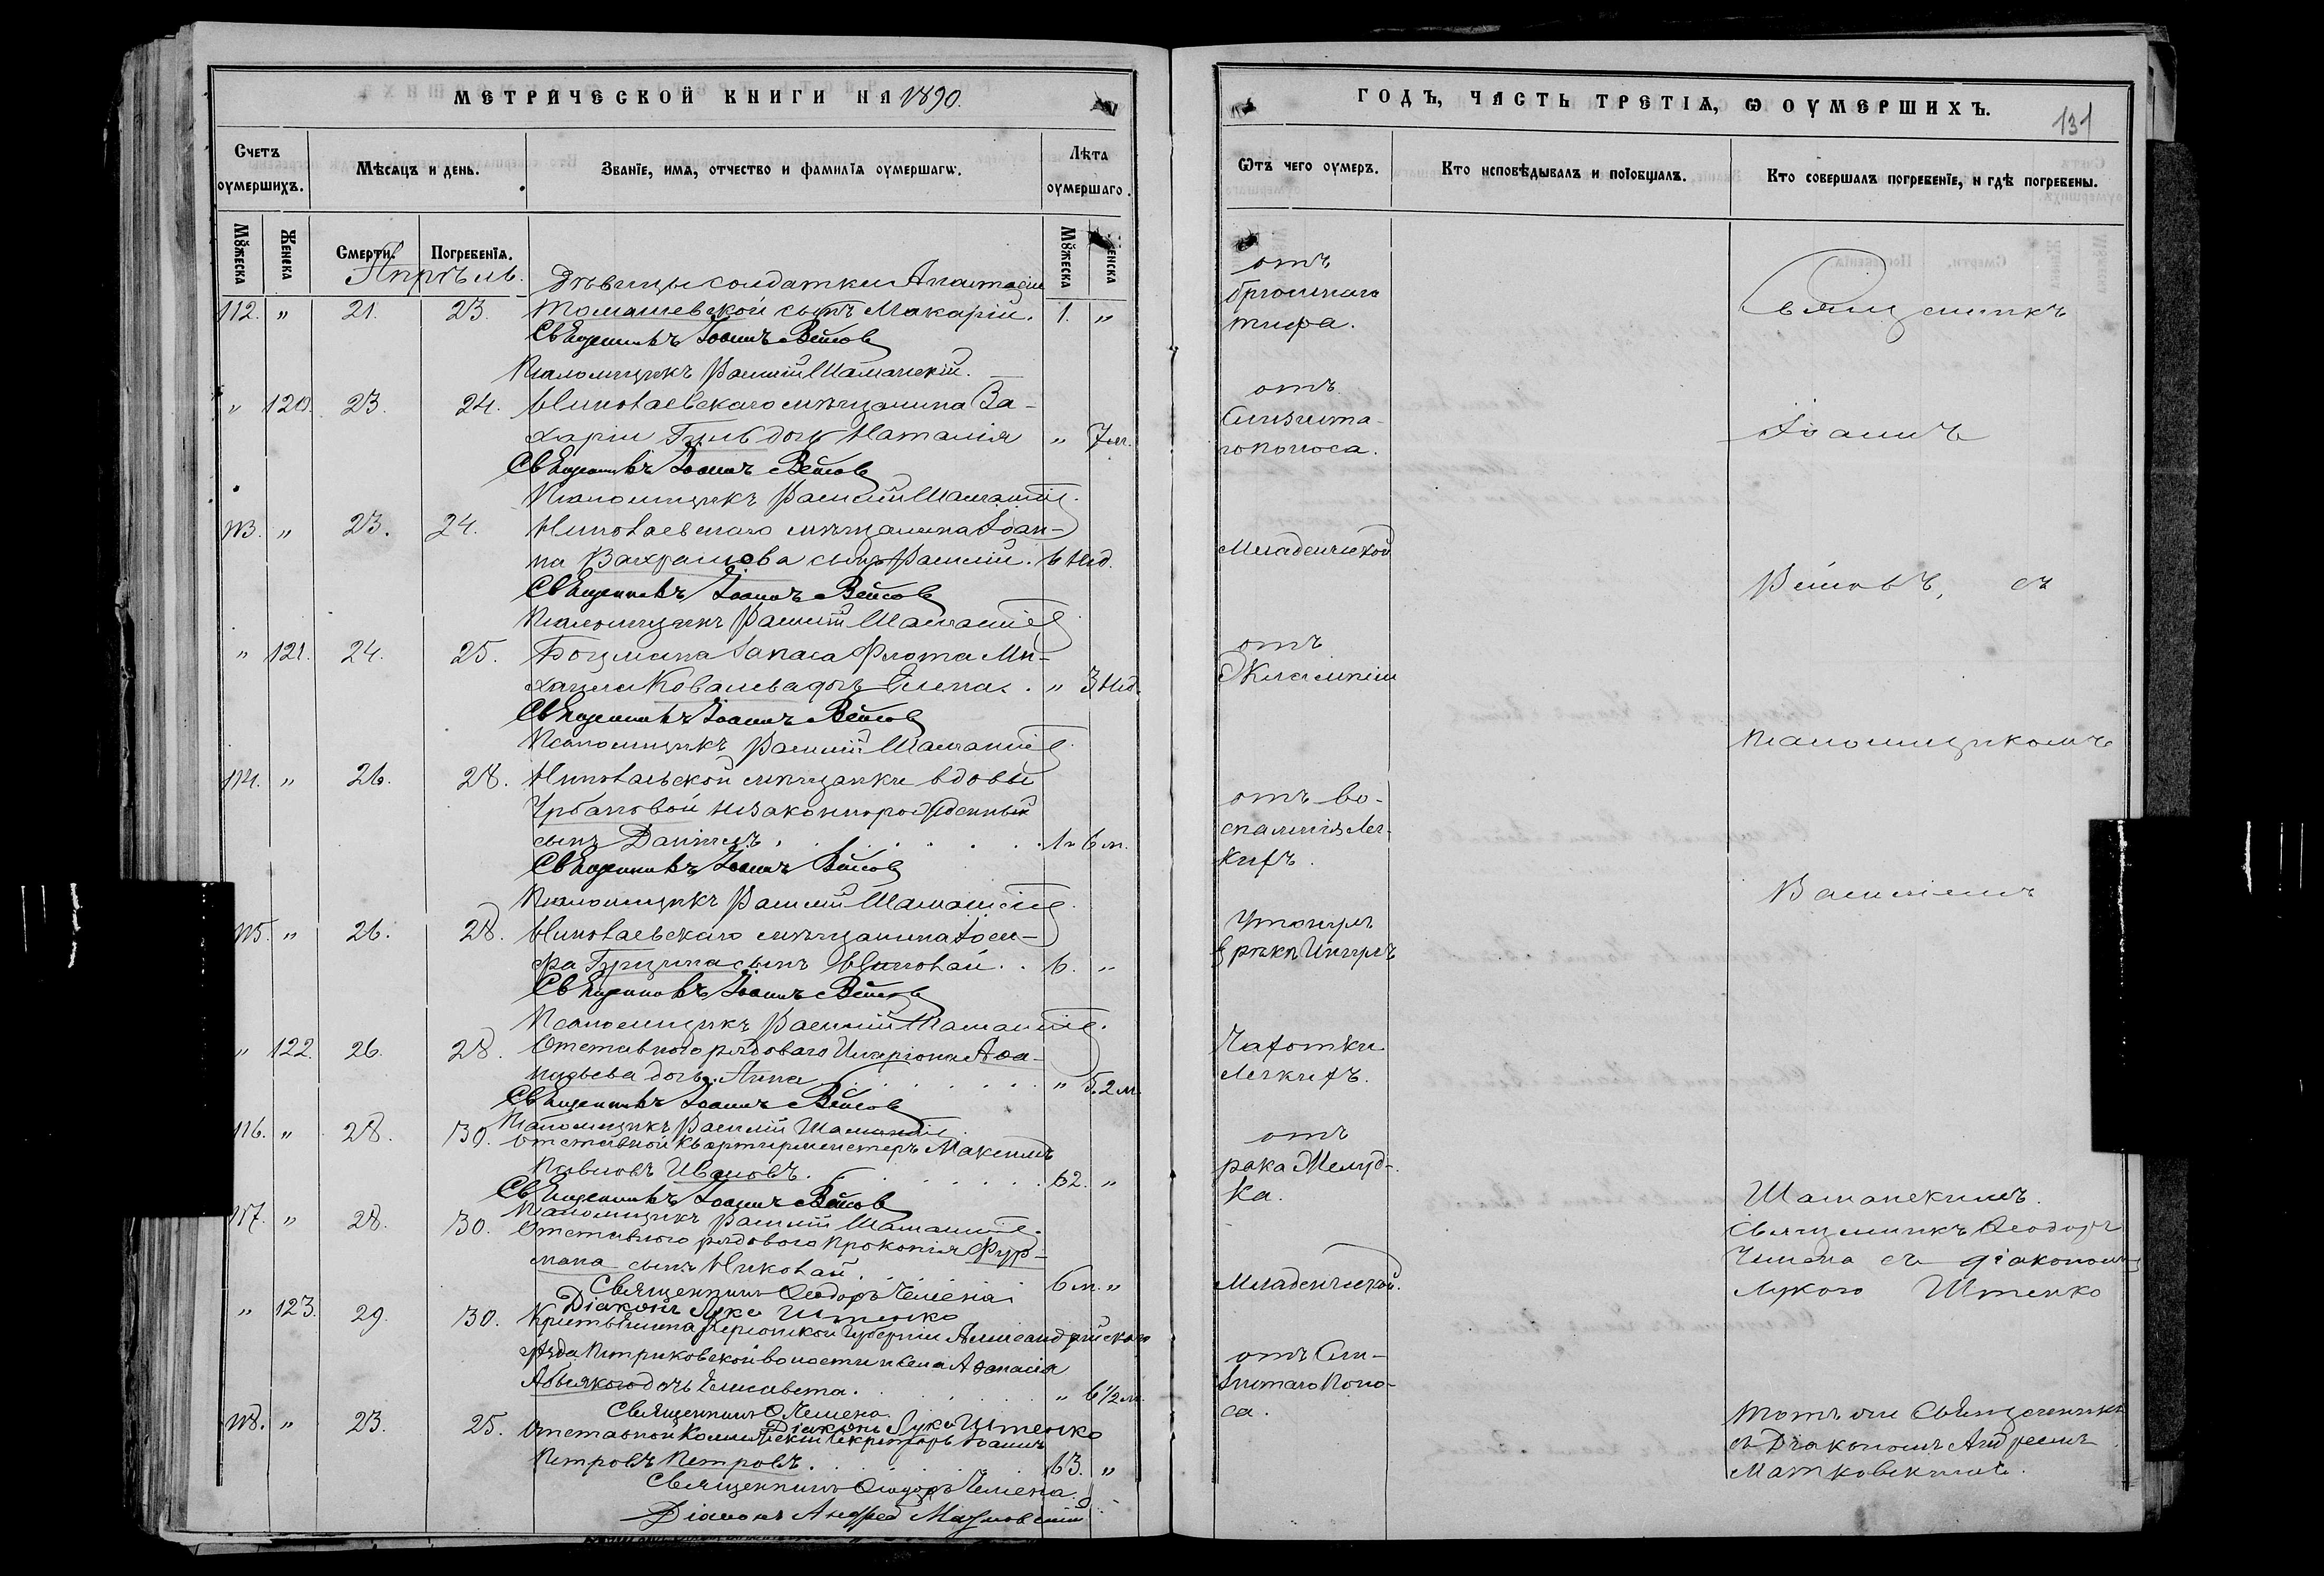 МЕТРИЧЕСКОЙ КНИГИ НА 1890.
Счетъ оумершихъ.
Мѣсяцъ и день.
Званіе, имя, отчество и фамилія оумершагω.
Лѣта оумершаго.
Мꙋжеска
Женска
Смерти.
Погребенія.
Мꙋжеска
Женска
Апрѣль.
Дѣвицы солдатки Анастасіи
112. „ 21. 23. Томашевской сынъ Макарій. 1. „
Священникъ Іоаннъ Вейсовъ
Псаломщикъ Василій Шаманскій.
„ 120. 23. 24. Николаевскаго мѣщанина За-
харіи дочь Наталія „ 7 м.
Священникъ Іоаннъ Вейсовъ
Псаломщикъ Василій Шаманскій.
113. „ 23. 24. Николаевскаго мѣщанина Іоан-
на Вахрамова сынъ Василій. 6 нед.
Священникъ Іоаннъ Вейсовъ
Псаломщикъ Василій Шаманскій
„ 121. 24. 25. Боцмана запаса флота Ми-
хаила Ковалева дочь Елена. „ 3 нед.
Священникъ Іоаннъ Вейсовъ
Псаломщикъ Василій Шаманскій
114. „ 26. 28. Николаевской мѣщанки вдовы
Урбановой незаконнорожденный
сынъ Даніилъ 1 „ 6 м.
Священникъ Іоаннъ Вейсовъ
Псаломщикъ Василій Шаманскій
115. „ 26. 28. Николаевскаго мѣщанина Іоси-
фа сынъ Николай. 6. „
Священникъ Іоаннъ Вейсовъ
Псаломщикъ Василій Шаманскій.
„ 122. 26. 28. Отставного рядоваго Иларіона Аѳа-
насьева дочь Анна „ 5. 2 м.
Священникъ Іоаннъ Вейсовъ
Псаломщикъ Василій Шаманскій
116. „ 28. 30. Отставной квартирмейстеръ Максимъ
Павловъ Ивановъ. 62. „
Священникъ Іоаннъ Вейсовъ
Псаломщикъ Василій Шаманскій.
117. „ 28. 30. Отставного рядового Прокопія Фур-
мана сынъ Николай. 6 м. „
Священникъ Ѳеодоръ Чемена
Діаконъ Лука Штенко
„ 123. 29. 30. Крестьянина Херсонской губерніи Александрійскаго
уѣзда Петриковской волости Аѳанасія
дочь Елисавета. „ 6 1/2 м.
Священникъ Ѳ Чемена.
Діаконъ Лука Штенко
118. „ 23. 25. Отставной Коллежскій Секретарь Іоаннъ
Петровъ Петровъ. 63. „
Священникъ Ѳеодоръ Чемена.
Діаконъ Андрей
ГОДЪ, ЧАСТЬ ТРЕТІЯ, Ѡ ОУМЕРШИХЪ.
131
Ѿтъ чего оумеръ.
Кто исповѣдывалъ и пріобщалъ.
Кто совершалъ погребеніе, и гдѣ погребены.
отъ
брюшнаго
тифа.
Священникъ
отъ
Іоаннъ
поноса.
Младенческой
Вейсовъ, съ
отъ
псаломщикомъ
отъ во-
спаленія лег-
кихъ.
Василіемъ
Утонулъ
въ рѣкѣ Ингулъ
Чахотки
легкихъ.
отъ
рака желуд-
ка.
Шаманскимъ.
Священникъ Ѳеодоръ
Чемена съ діакономъ
Младенческой.
Лукою Штенко
отъ
поно-
са.
Тотъ же Священникъ
съ Діакономъ Андреемъ
Матковскимъ.